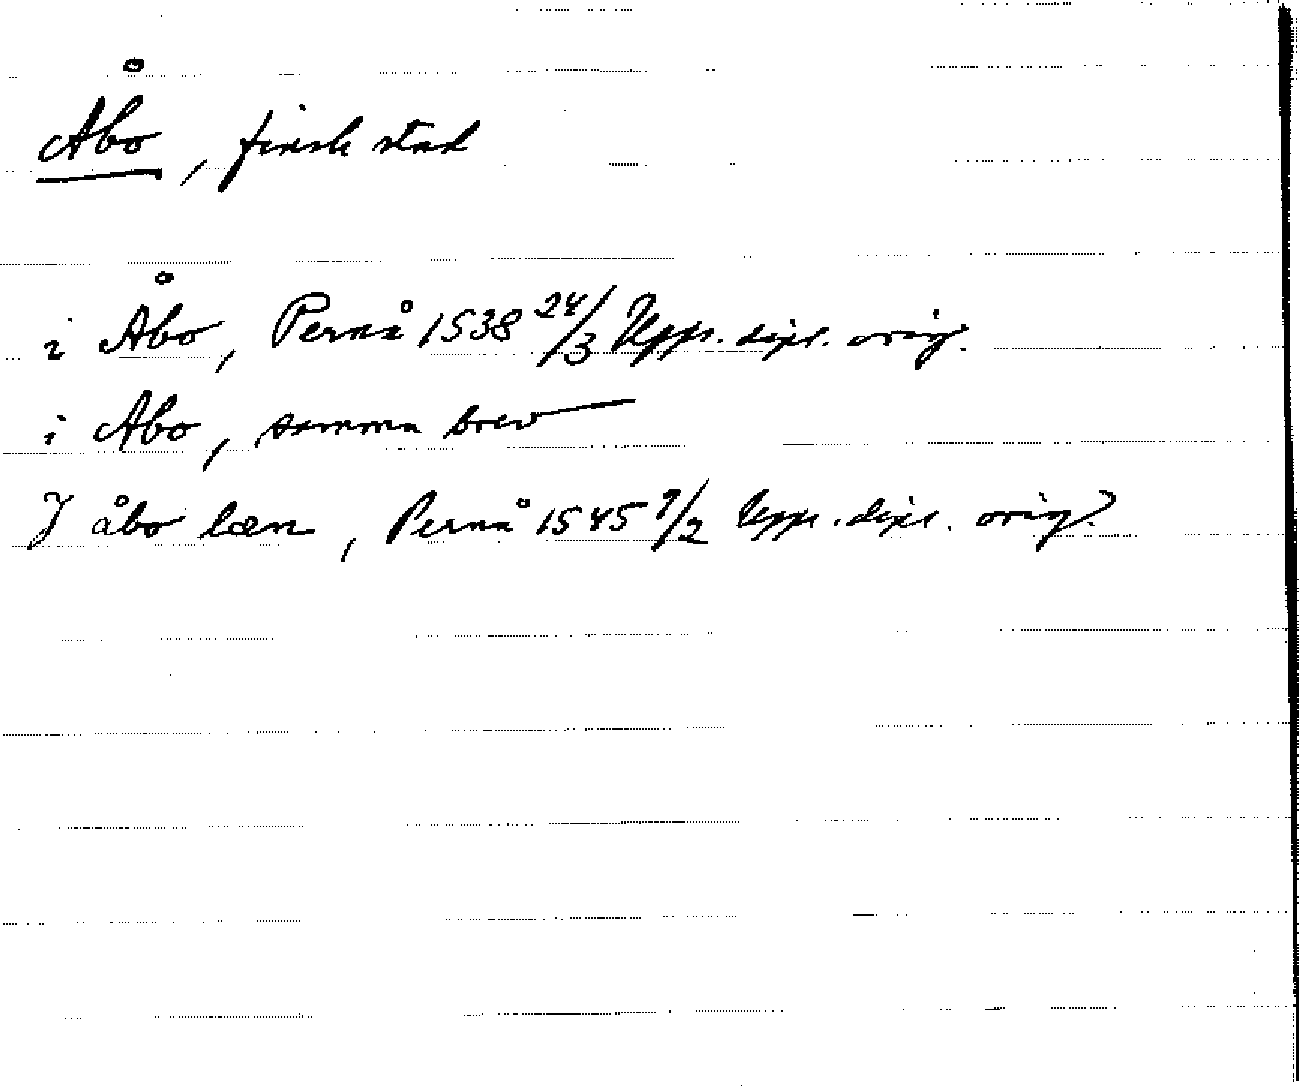 Åbo, finsk stad
i Åbo, Pernå 1538 24/3 Upps. dipl. orig.
i Abo, samma brev
J åbo læn, Pernå 1545 7/2 Upps. dipl. orig.